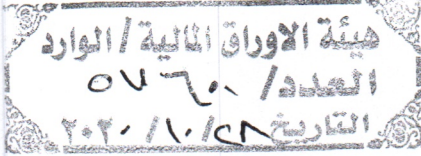 هيئة الاوراق المالية / الوارد
العدد/
التاريخ ٢٠٢٠/١٠/٢٨